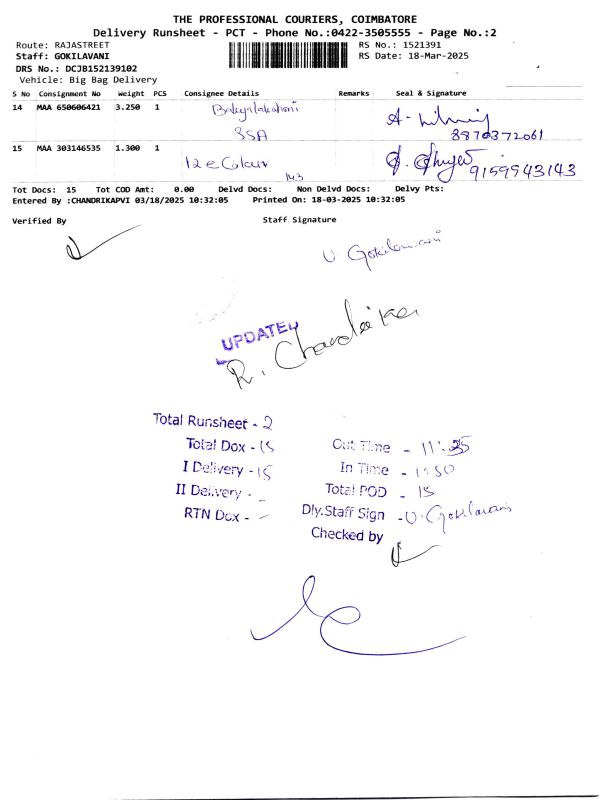 THE PROFESSIONAL COURIERS, COIMBATORE
Delivery Runsheet - PCT - Phone No.:0422-3505555 - Page No.:2
Route: RAJASTREET RS No.: 1521391
Staff: GOKILAVANI RS Date: 18-Mar-2025
DRS No.: DCJB152139102
Vehicle: Big Bag Delivery
S No Consignment No Weight PCS Consignee Details Remarks Seal & Signature
14 MAA 650606421 3.250 1
SSA 8870372061
15 MAA 303146535 1.300 1
12 e Colour 9159943143
143
Tot Docs: 15 Tot COD Amt: 0.00 Delvd Docs: Non Delvd Docs: Delvy Pts:
Entered By :CHANDRIKAPVI 03/18/2025 10:32:05 Printed On: 18-03-2025 10:32:05
Verified By Staff Signature
U. Gokilavani
UPDATED
R. Chandrika
Total Runsheet - 2
Total Dox - 15 Out Time - 11:25
I Delivery - 15 In Time - 1:50
II Delivery - - Total POD - 15
RTN Dox - - Dly.Staff Sign - U. Gokilavani
Checked by